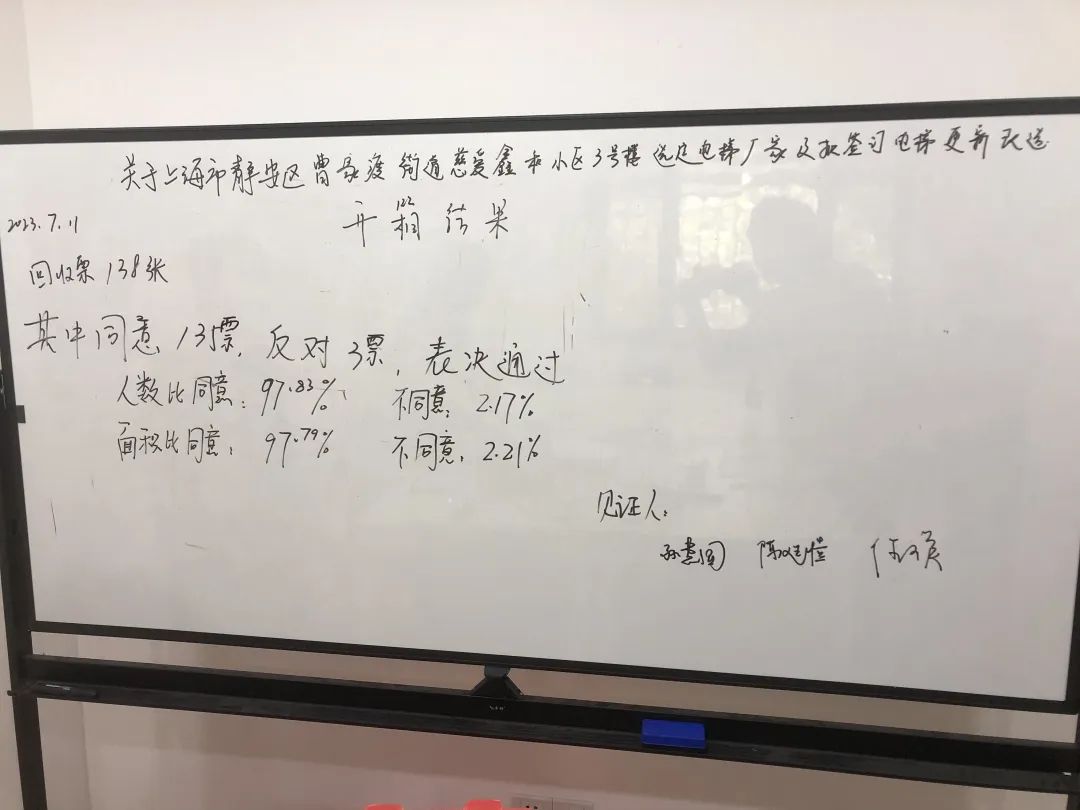 关于上海市静安区曹家渡街道慈爱鑫本小区3号楼选定电梯厂家及权签订电梯更新改造
开箱结果
2023.7.11
回收票138张
其中同意135票，反对3票，表决通过
人数比同意：97.83% 不同意：2.17%
面积比同意：97.79% 不同意：2.21%
见证人：